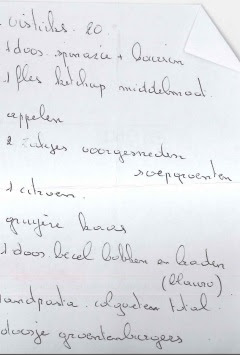 vissticks. 20.
1 doos spinazie +
1 fles ketchup middelmaat.
appelen
2 zakjes voorgesneden
soepgroenten
1 citroen.
gruyère kaas
1 doos becel bakken en braden
(blauw)
tandpasta. colgate total.
doosje groentenburgers